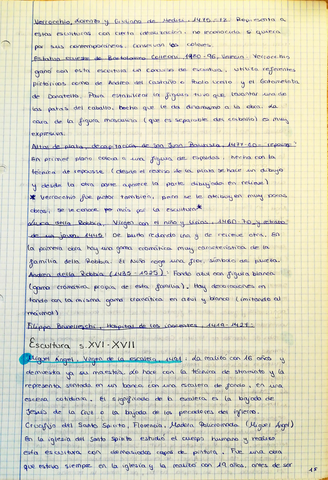 Verrocchio, Lorenzo y Giuliano de Medici, 1475-78. Representa a
estas esculturas con cierta idealización, no reconocida si quiera
por sus contemporáneos. Conservan los colores.
Estatua ecuestre de Bartolomeo Colleoni, 1480-96, Venecia. Verrocchio
ganó con esta escultura un concurso de escultura, utiliza referentes
pictóricos como de Andrea del Castaño o Paolo Uccello y el Gattamelata
de Donatello. Para estabilizar su figura tuvo que levantar una de
las patas del caballo, hecho que le da dinamismo a la obra. La
cara de la figura masculina (que es separable del caballo) es muy
expresiva.
Altar de plata, decapitación de San Juan Bautista, 1477-80.
En primer plano coloca a una figura de espaldas. Hecha con la
técnica de repoussé (desde el revés de la plata se hace un dibujo
y desde la otra parte aparece la parte dibujada en relieve)
* Verrocchio fue pintor también, pero se le atribuyen muy pocas
obras; se le conoce por más por la escultura *
Luca della Robbia, Virgen con el niño y
de un joven 1445. De bulto redondo una y de relieve otra. En
la primera obra hay una gama cromática muy característica de la
familia della Robbia. El Niño coge una flor, símbolo de pureza.
Andrea della Robbia (1435-1525). Fondo azul con figura blanca
(gama cromática propia de esta familia). Hay decoraciones en
fondo con la misma gama cromática en azul y blanco (imitando al
mármol)
Filippo Brunelleschi, Hospital de los inocentes 1419-1427.
Escultura s. XVI-XVII
Miguel Ángel, Virgen de la escalera, 1491. La realizó con 16 años y
demuestra ya su maestría. Lo hace con la técnica de stiacciato y la
representa sentada en un banco con una escalera de fondo, en una
escena cotidiana. El significado de la escalera es la bajada de
Jesús de la Cruz o la bajada de los pecadores del infierno.
Crucifijo del Santo Spirito, Florencia, Madera Policromada (Miguel Ángel)
En la iglesia del Santo Spirito estudió el cuerpo humano y realizó
esta escultura con demasiadas capas de pintura. Fue una obra
que estuvo siempre en la iglesia y la realizó con 19 años, antes de ser
18